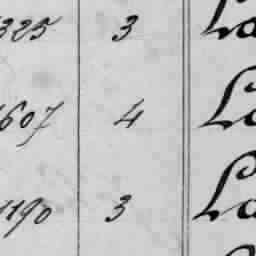 325 3 La
1607 4 La
1190 3 La